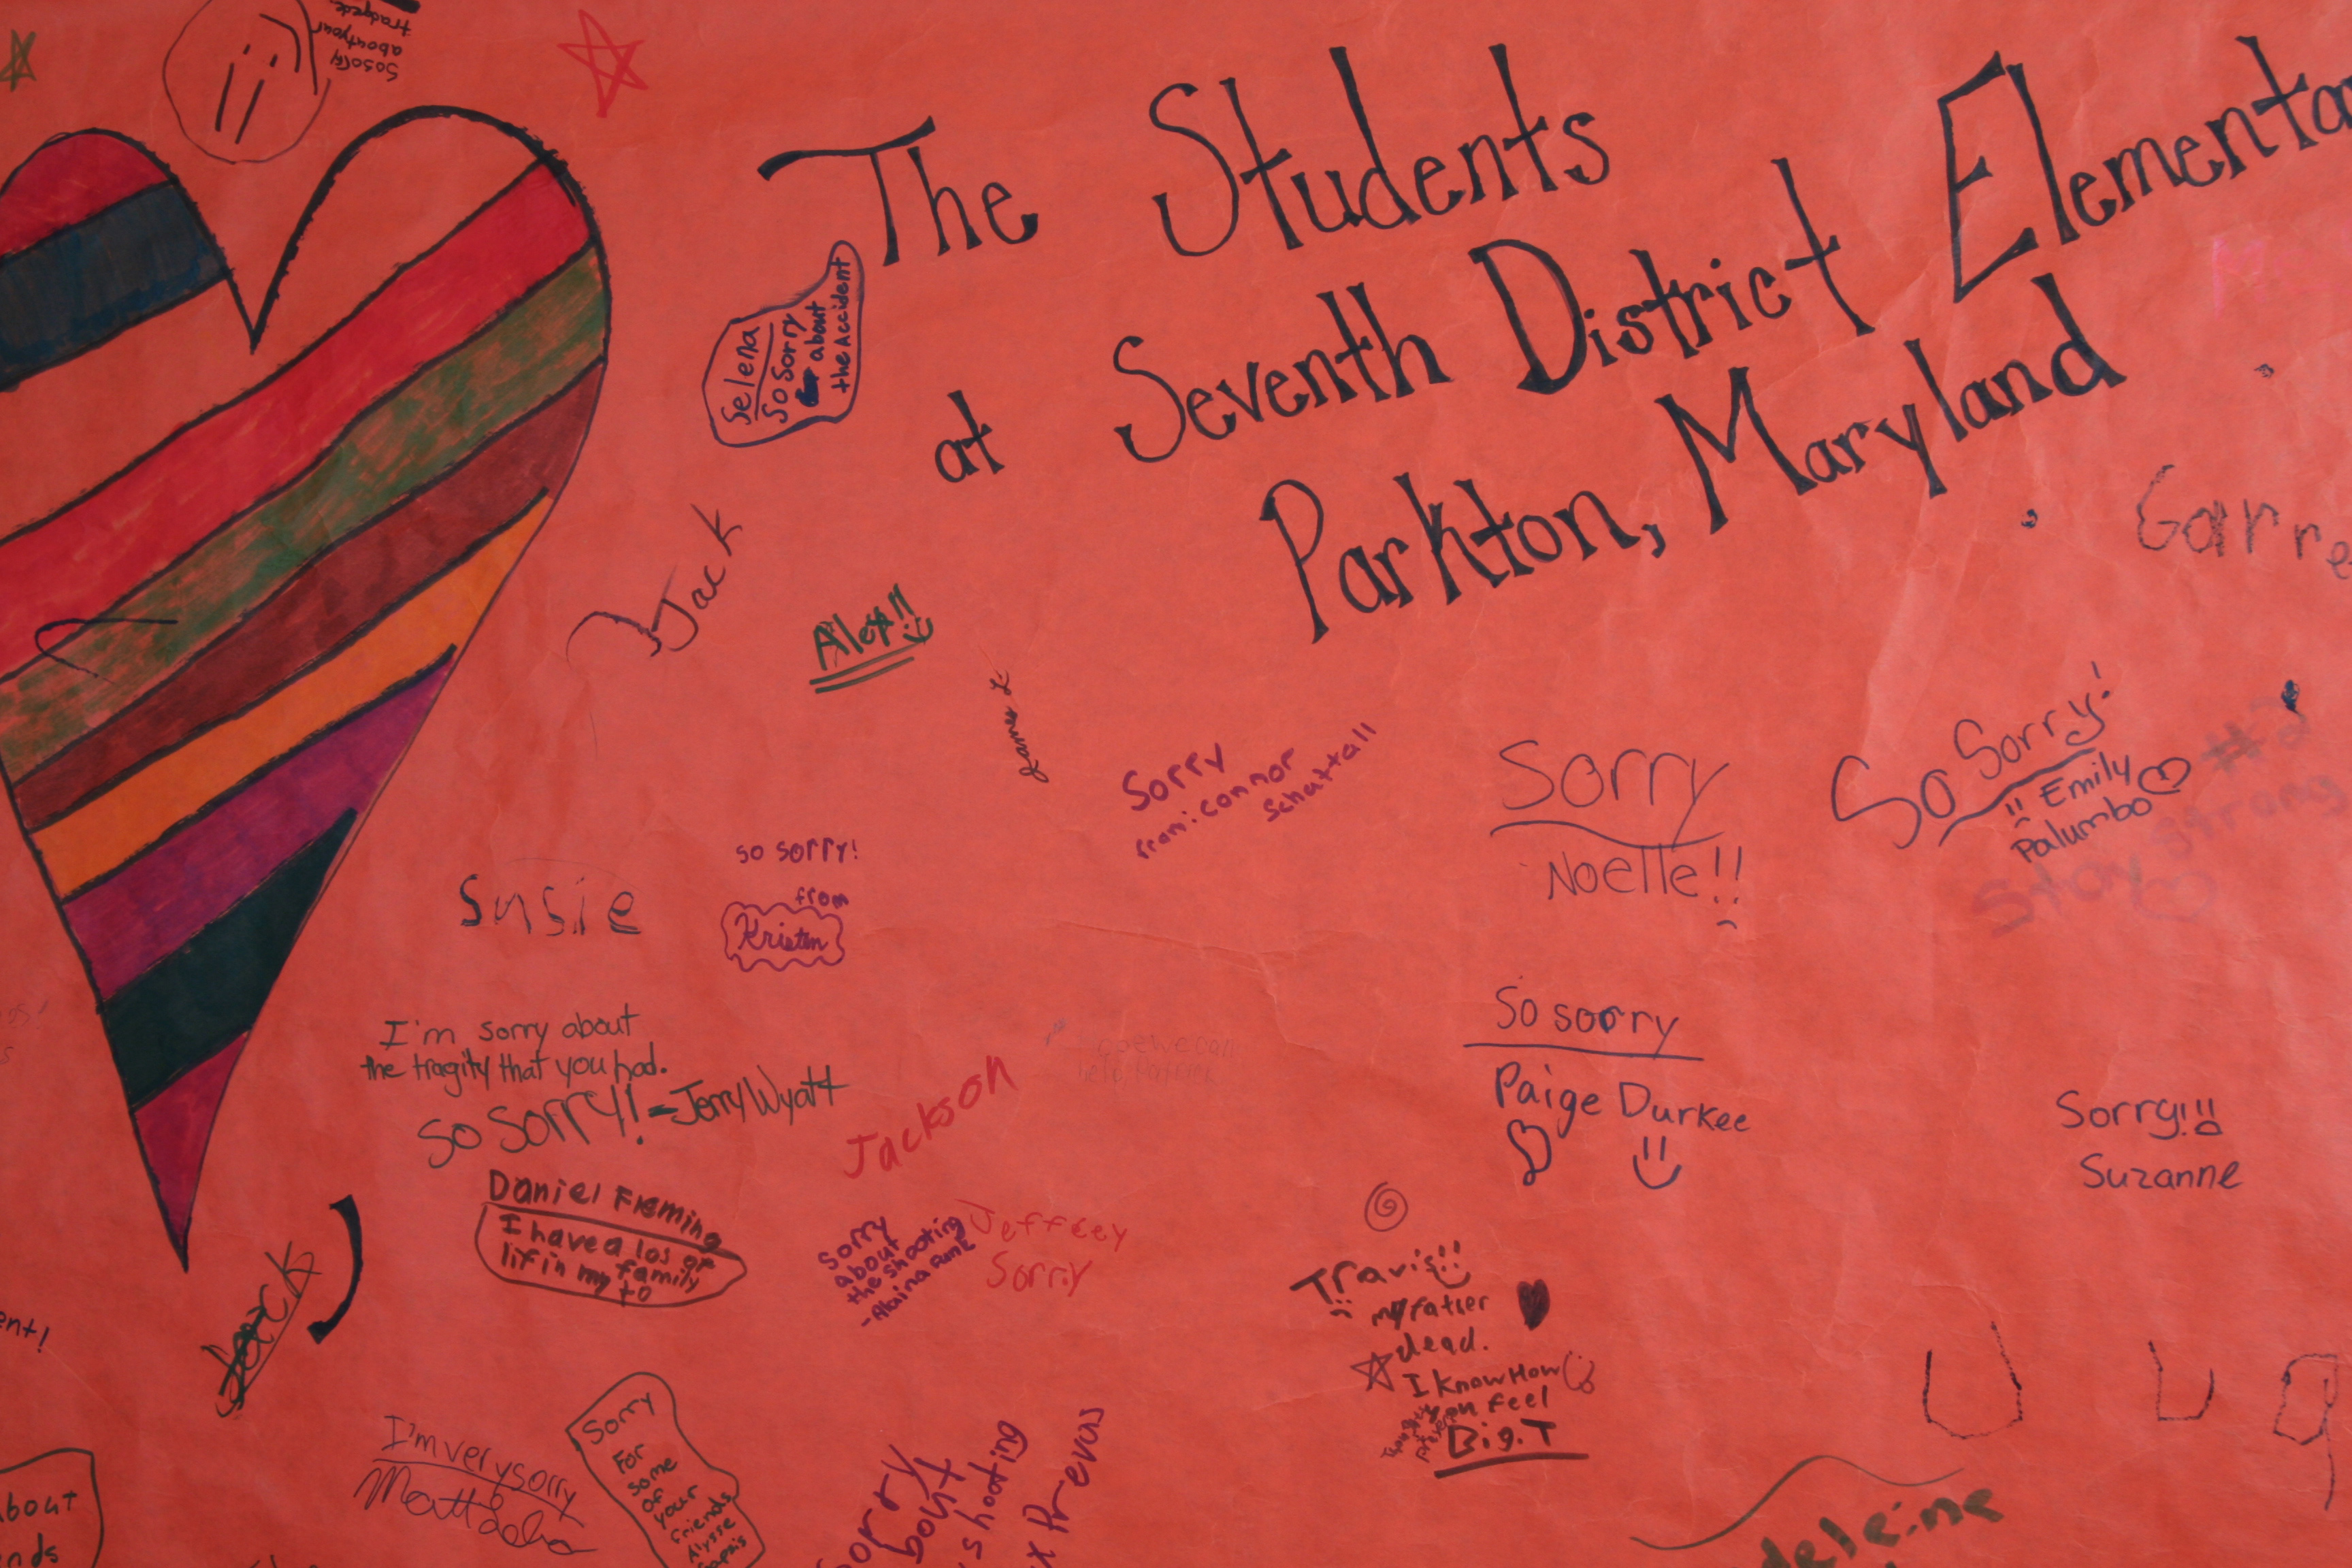 So sorry
about your
tradgede.
The Students
at Seventh District Elementa
Parkton, Maryland
Selena
So Sorry
about
the Accident
Jack
Alex!!
James L.
Garre
Sorry
from: connor
Schattall
Sorry
Noelle!!
So Sorry!
Emily
Palumbo
#2
Stay strong
Susie
so sorry!
from
Kristen
I'm sorry about
the tragity that you had.
So Sorry! - Jerry Wyatt
Jackson
So sorry
Paige Durkee
Sorry!!
Suzanne
Daniel Fleming
I have a los of
lif in my family
to
Sorry
about
the shooting
-Alaina Runk
Jeffrey
Sorry
Travis!!
my father
dead.
I know How
you Feel
Big.T
ent!
Jack
I'm very sorry
Sorry
For
some
of
your
friends
Alysse
bout
nds
orry
bout
shooting
x Prevas
deleine